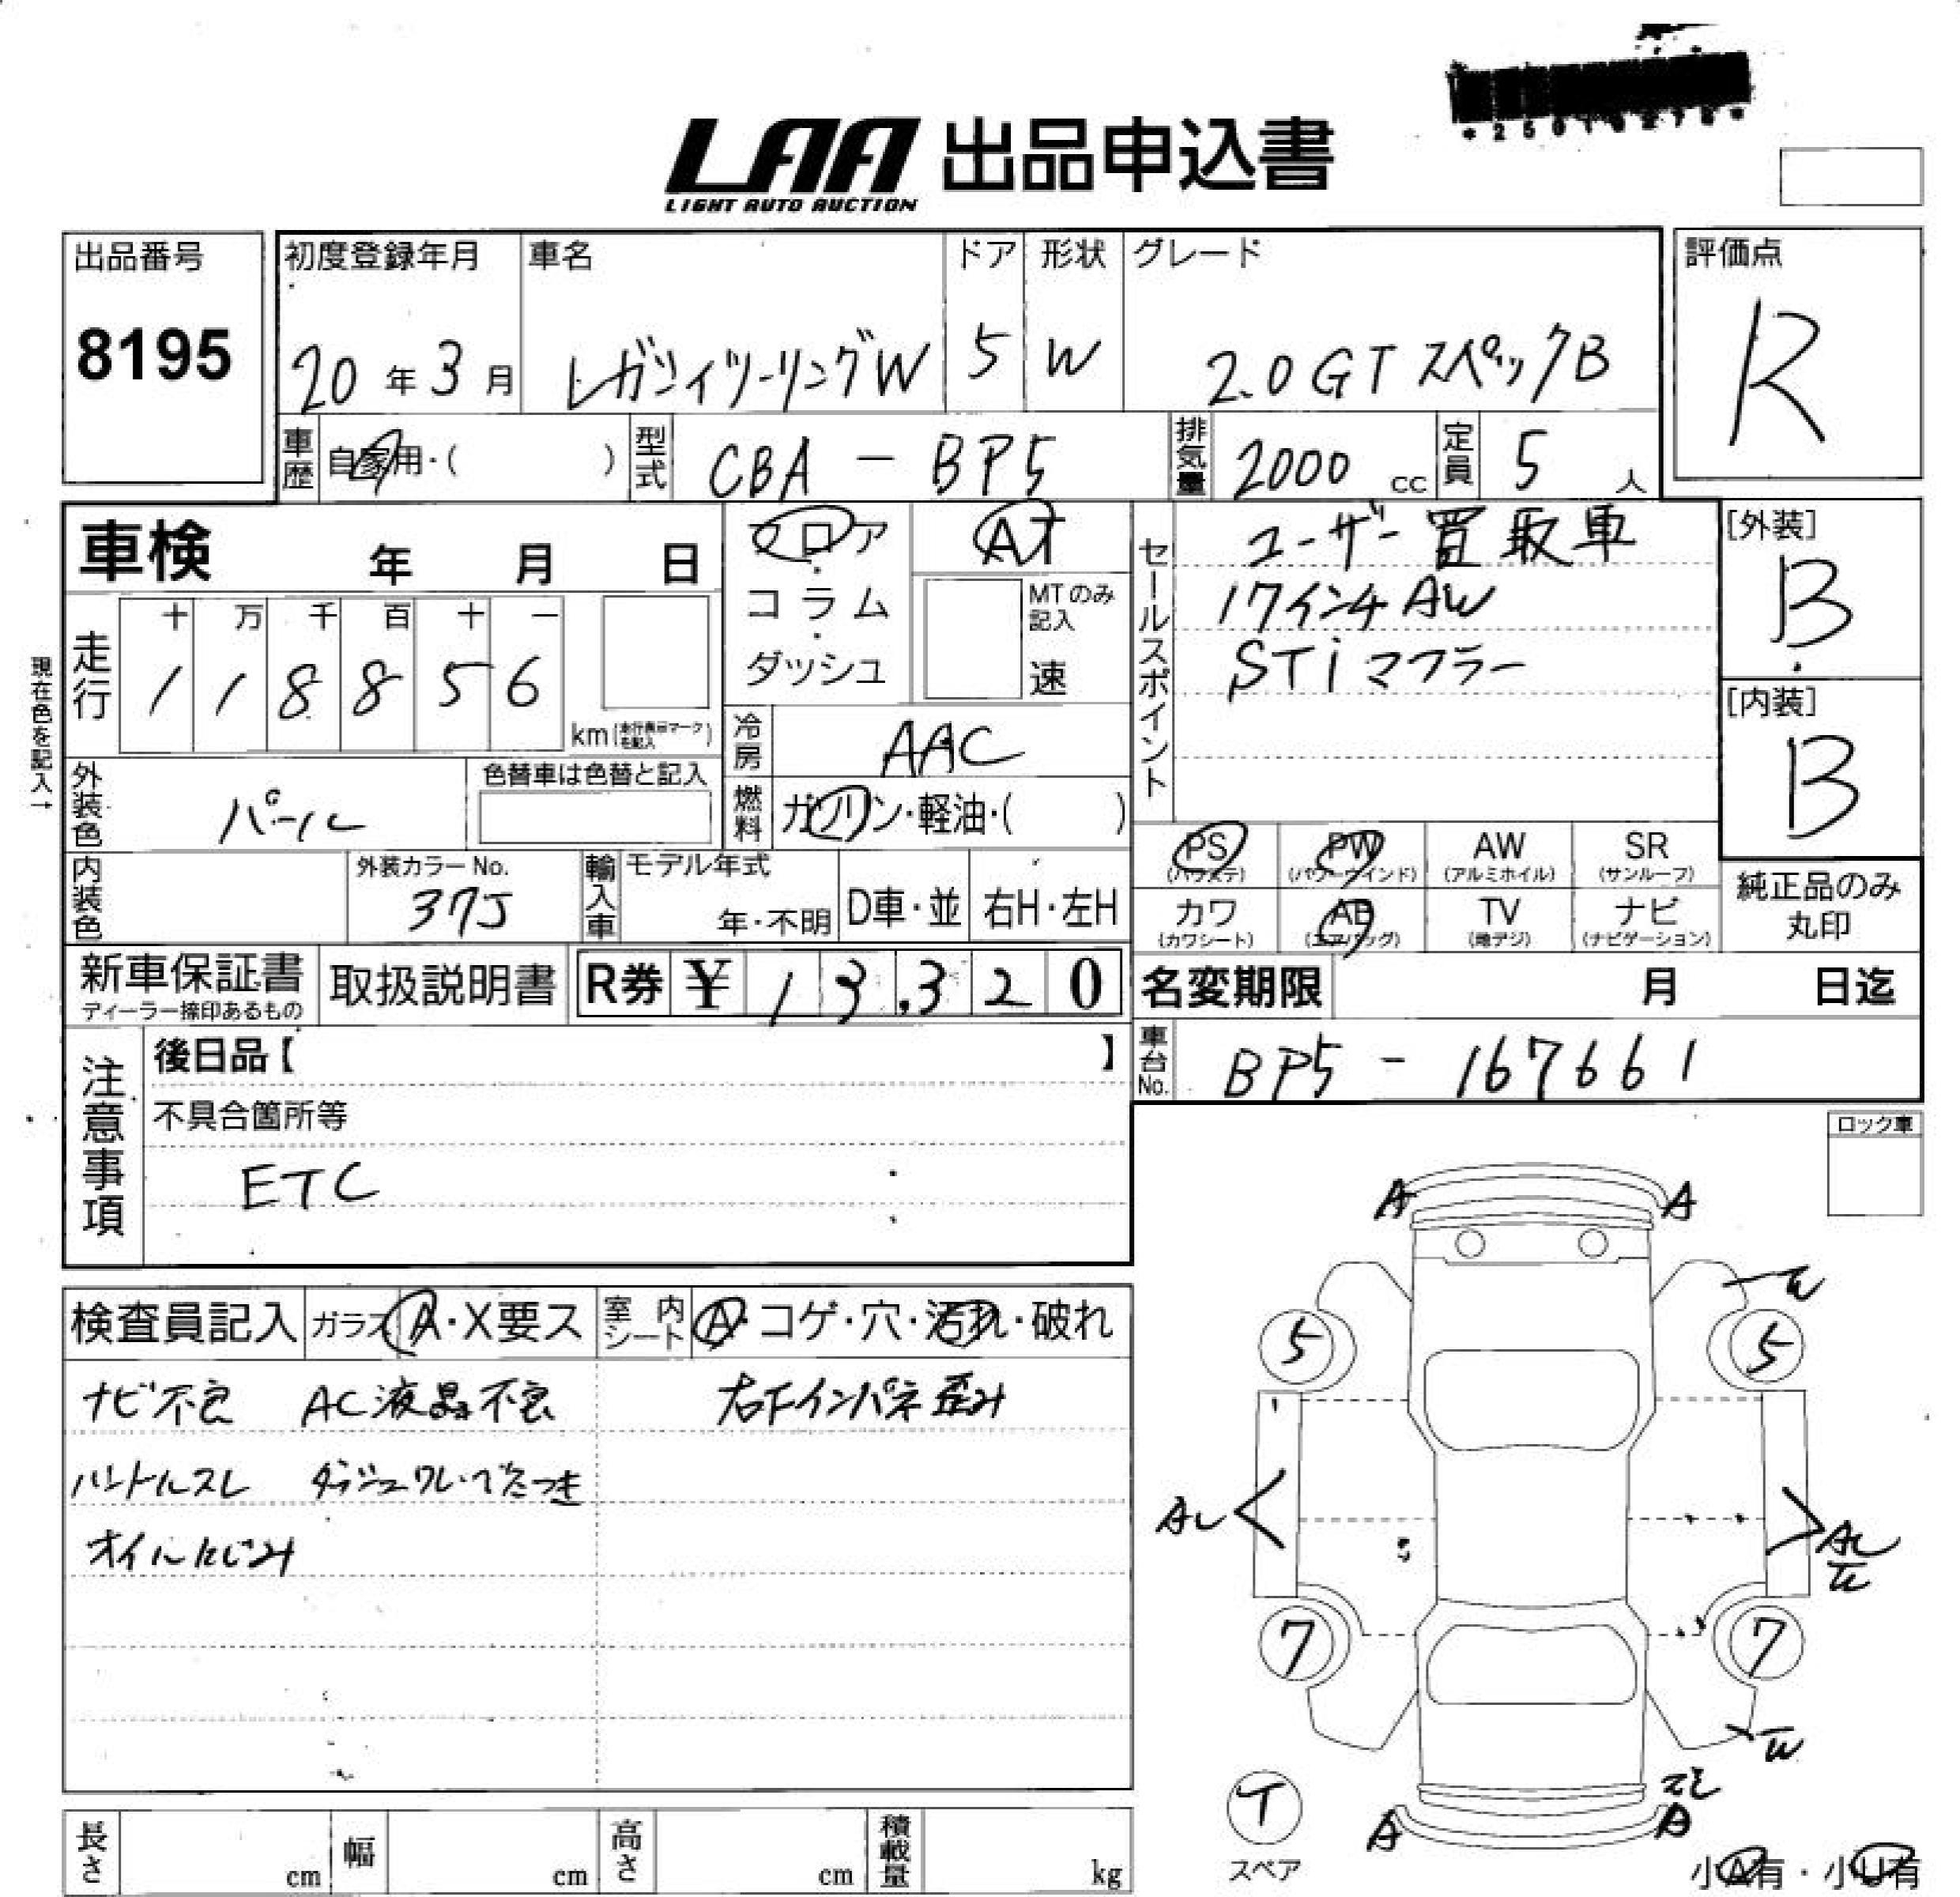 LAA 出品申込書
LIGHT AUTO AUCTION
出品番号
8195
初度登録年月
20年3月
車名
レガシィツーリングW
ドア
5
形状
W
グレード
2.0GT スペックB
評価点
R
車歴 自家用・( )
型式 CBA - BP5
排気量 2000 cc
定員 5 人
車検 年 月 日
走行
十 万 千 百 十 一
1 1 8 8 5 6
km(走行表示マークを記入)
現在色を記入→
フロア・コラム・ダッシュ
AT
MTのみ記入
速
冷房 AAC
燃料 ガソリン・軽油・( )
セールスポイント
ユーザー買取車
17インチAW
STiマフラー
[外装]
B
[内装]
B
外装色 パール
色替車は色替と記入
内装色
外装カラーNo.
37J
輸入車 モデル年式
年・不明
D車・並
右H・左H
PS (パワステ)
PW (パワーウインド)
AW (アルミホイル)
SR (サンルーフ)
カワ (カワシート)
AB (エアバッグ)
TV (地デジ)
ナビ (ナビゲーション)
純正品のみ丸印
新車保証書
ディーラー捺印あるもの
取扱説明書
R券 ¥ 13,320
名変期限 月 日迄
車台No. BP5 - 167661
注意事項
後日品【 】
不具合箇所等
ETC
ロック車
検査員記入
ガラス A・X要ス
室内シート A・コゲ・穴・汚れ・破れ
ナビ不良 AC液晶不良 右下インパネ歪み
ハンドルスレ
オイルにじみ
A A
W
5 5
AU
7 7
W
A A
T
スペア
小A有・小U有
長さ cm
幅 cm
高さ cm
積載量 kg